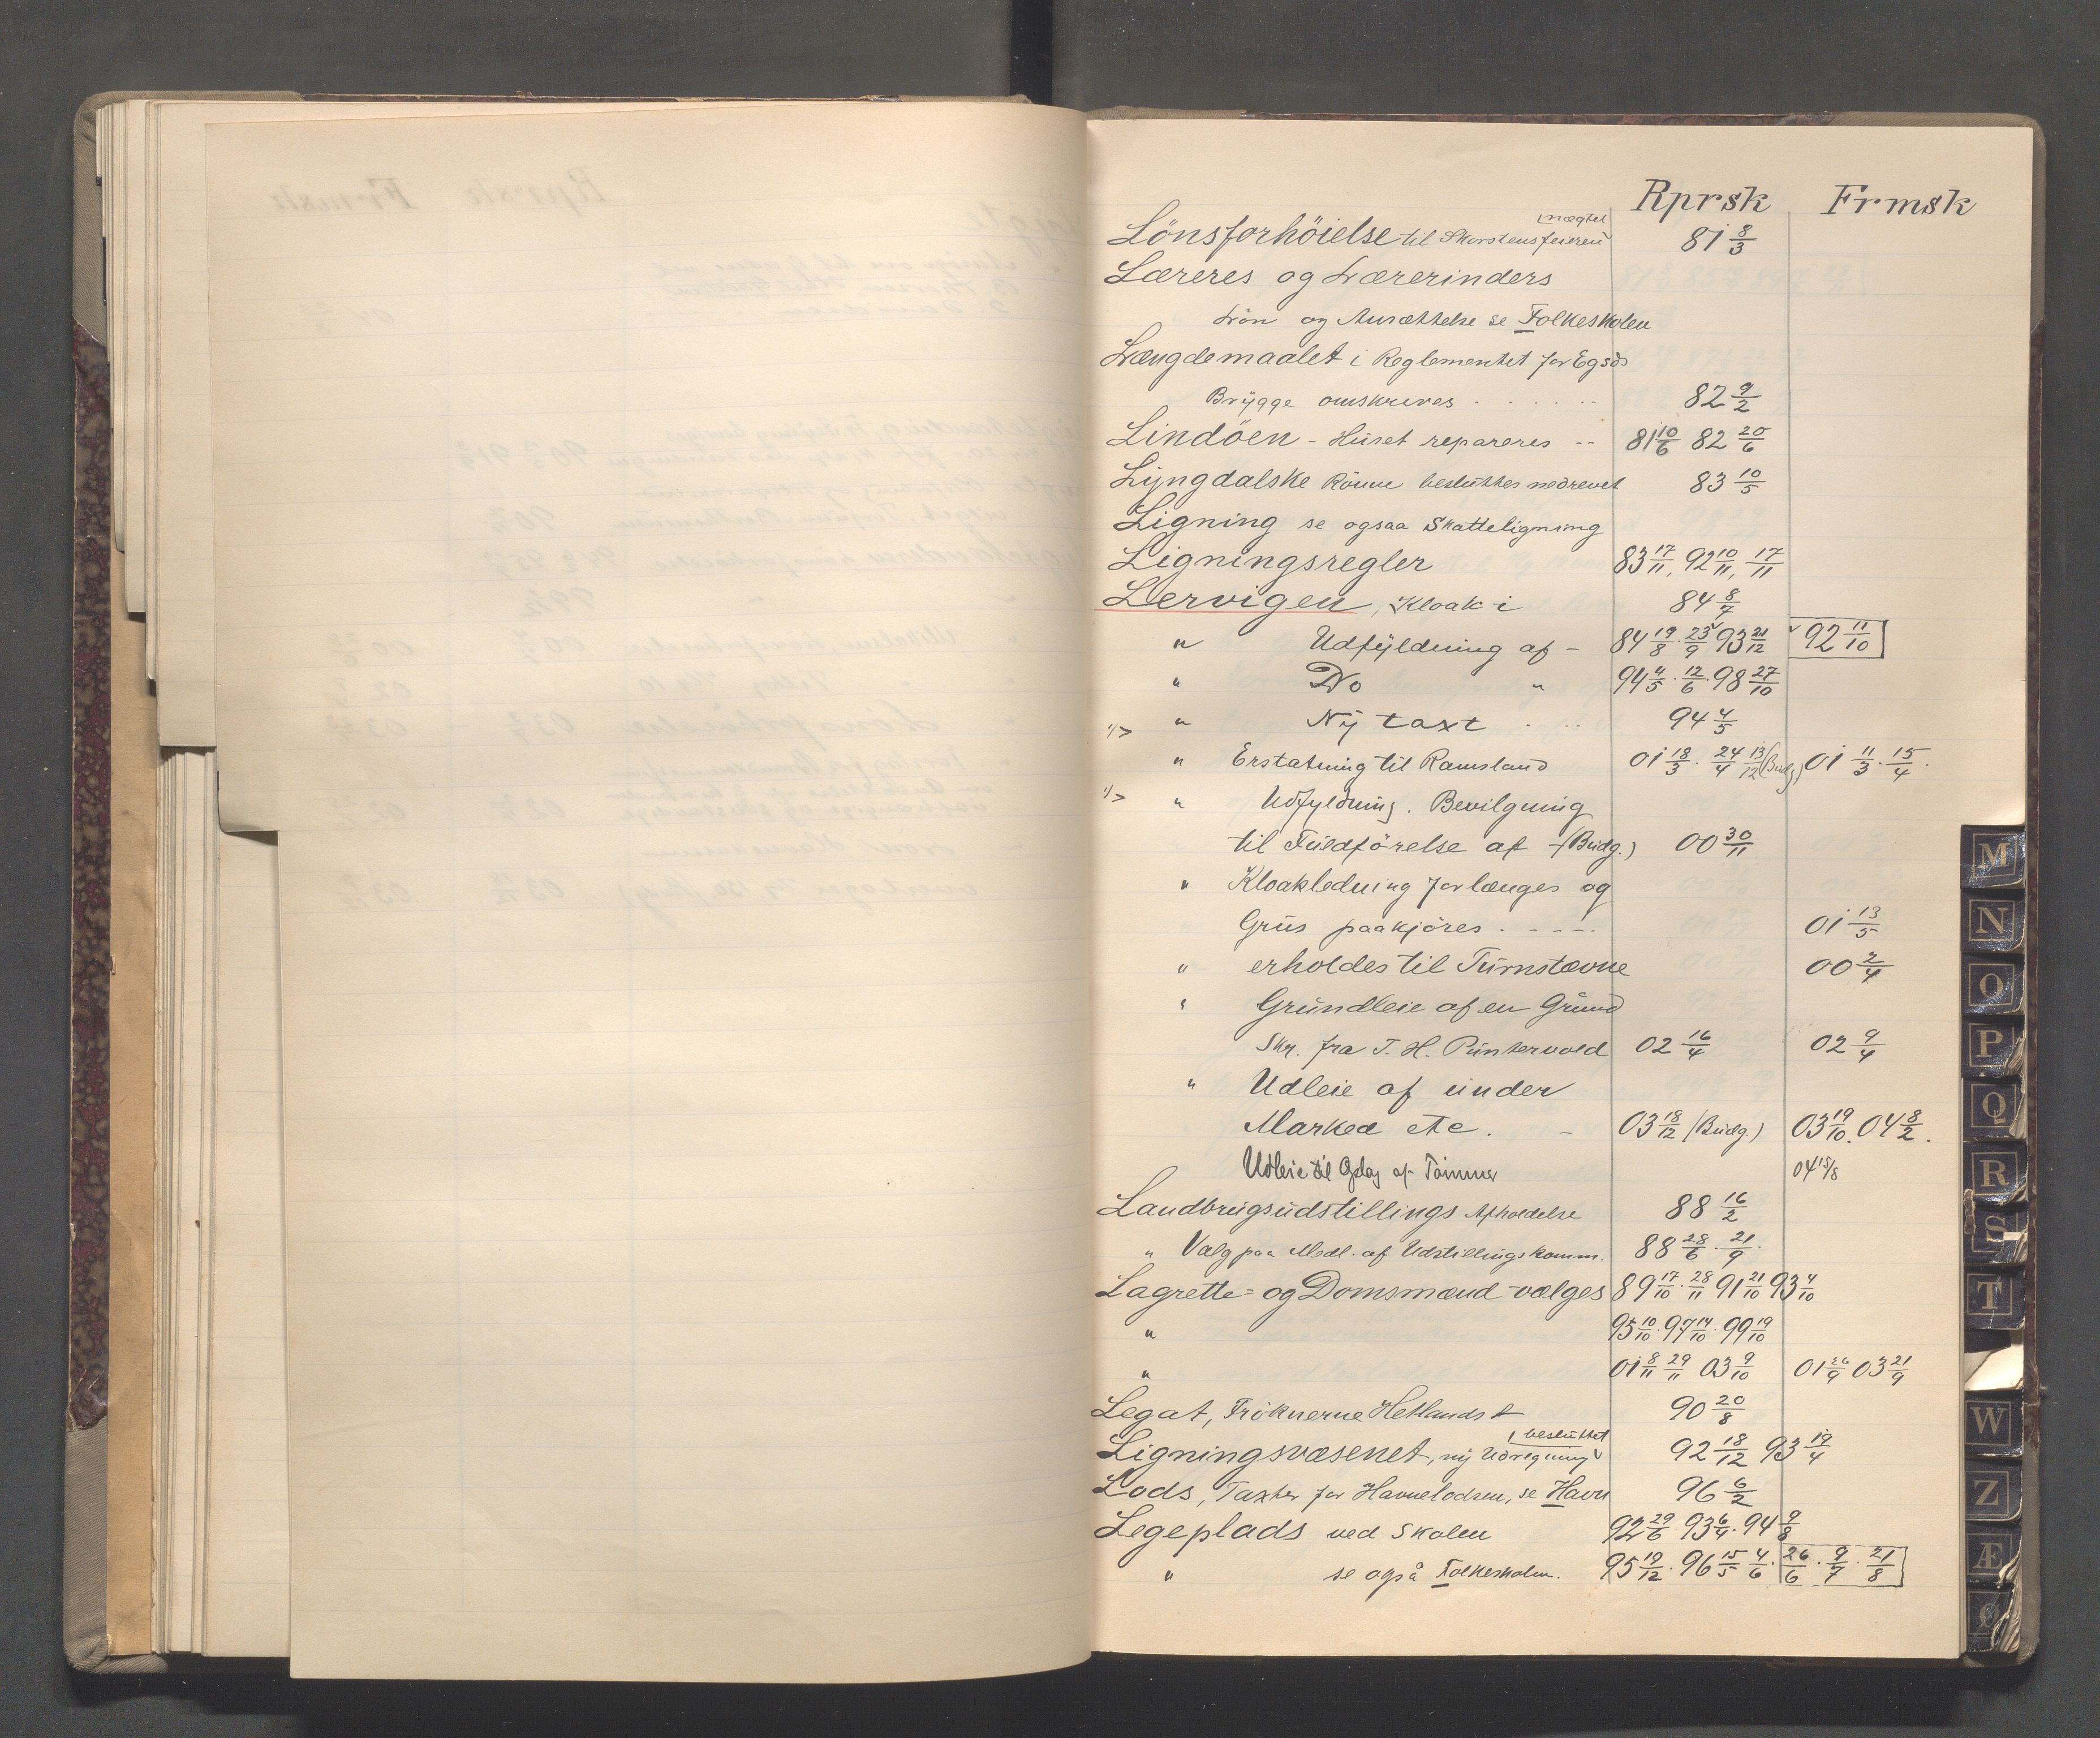 Rprsk Frmsk
nægtet
Lönsforhöielse til Skorstensfeieren 81 8/3
Læreres og Lærerinders
Lön og Ansættelse se Folkeskolen
Længdemaalet i Reglementet for Egsds
Brygge omskrives . . . . . 82 9/2
Lindöen - Huset repareres -- 81 10/6 82 20/6
Lyngdalske Rönne besluttes nedrevet 83 10/5
Ligning se ogsaa Skatteligning
Ligningsregler 83 17/11, 92 10/11, 17/11
Lervigen, Kloak i 84 8/7
" Udfyldning af - 84 19/8 . 23/9 93 21/12 92 11/10
" Do " 94 4/5 . 12/6 . 98 27/10
" Ny taxt . .. 94 4/5
" Erstatning til Ramsland 01 18/3 . 24/4 13/12 (Budg.) 01 11/3 . 15/4 .
" Udfyldning. Bevilgning
til Fuldförelse af - (Budg.) 00 30/11
" Kloakledning forlænges og
Grus paakjöres . - - - . 01 13/5
" erholdes til Turnstævne 00 2/4
" Grundleie af en Grund
Skr. fra T. H. Puntervold 02 16/4 02 9/4
" Udleie af under
Marked etc. - 03 18/12 (Budg.) 03 19/10. 04 8/2.
Udleie til Oplag af Tömmer 04 15/8
Landbrugsudstillings Afholdelse 88 16/2
" Valg paa Medl. af Udstillingskomm. 88 28/6 . 21/9 .
Lagrette= og Domsmænd vælges 89 17/10 . 28/11 91 21/10 93 4/10
" 95 10/10 . 97 14/10 . 99 19/10
" 01 8/11 29/11 03 9/10 01 26/9 03 21/9
Legat, Fröknerne Hetlands 90 20/8
besluttet
Ligningsvæsenet, ny Udregning 92 18/12 93 19/4
Lods, Taxter for Havnelodsen, se Havn 96 6/2
Legeplads ved Skolen 92 29/6 . 93 6/4 . 94 9/8
" se også Folkeskolen. 95 19/12 . 96 15/5 4/6 . 26/6 . 9/7 . 21/8
M
N
O
P
Q
R
S
T
W
Z
Æ
Ø